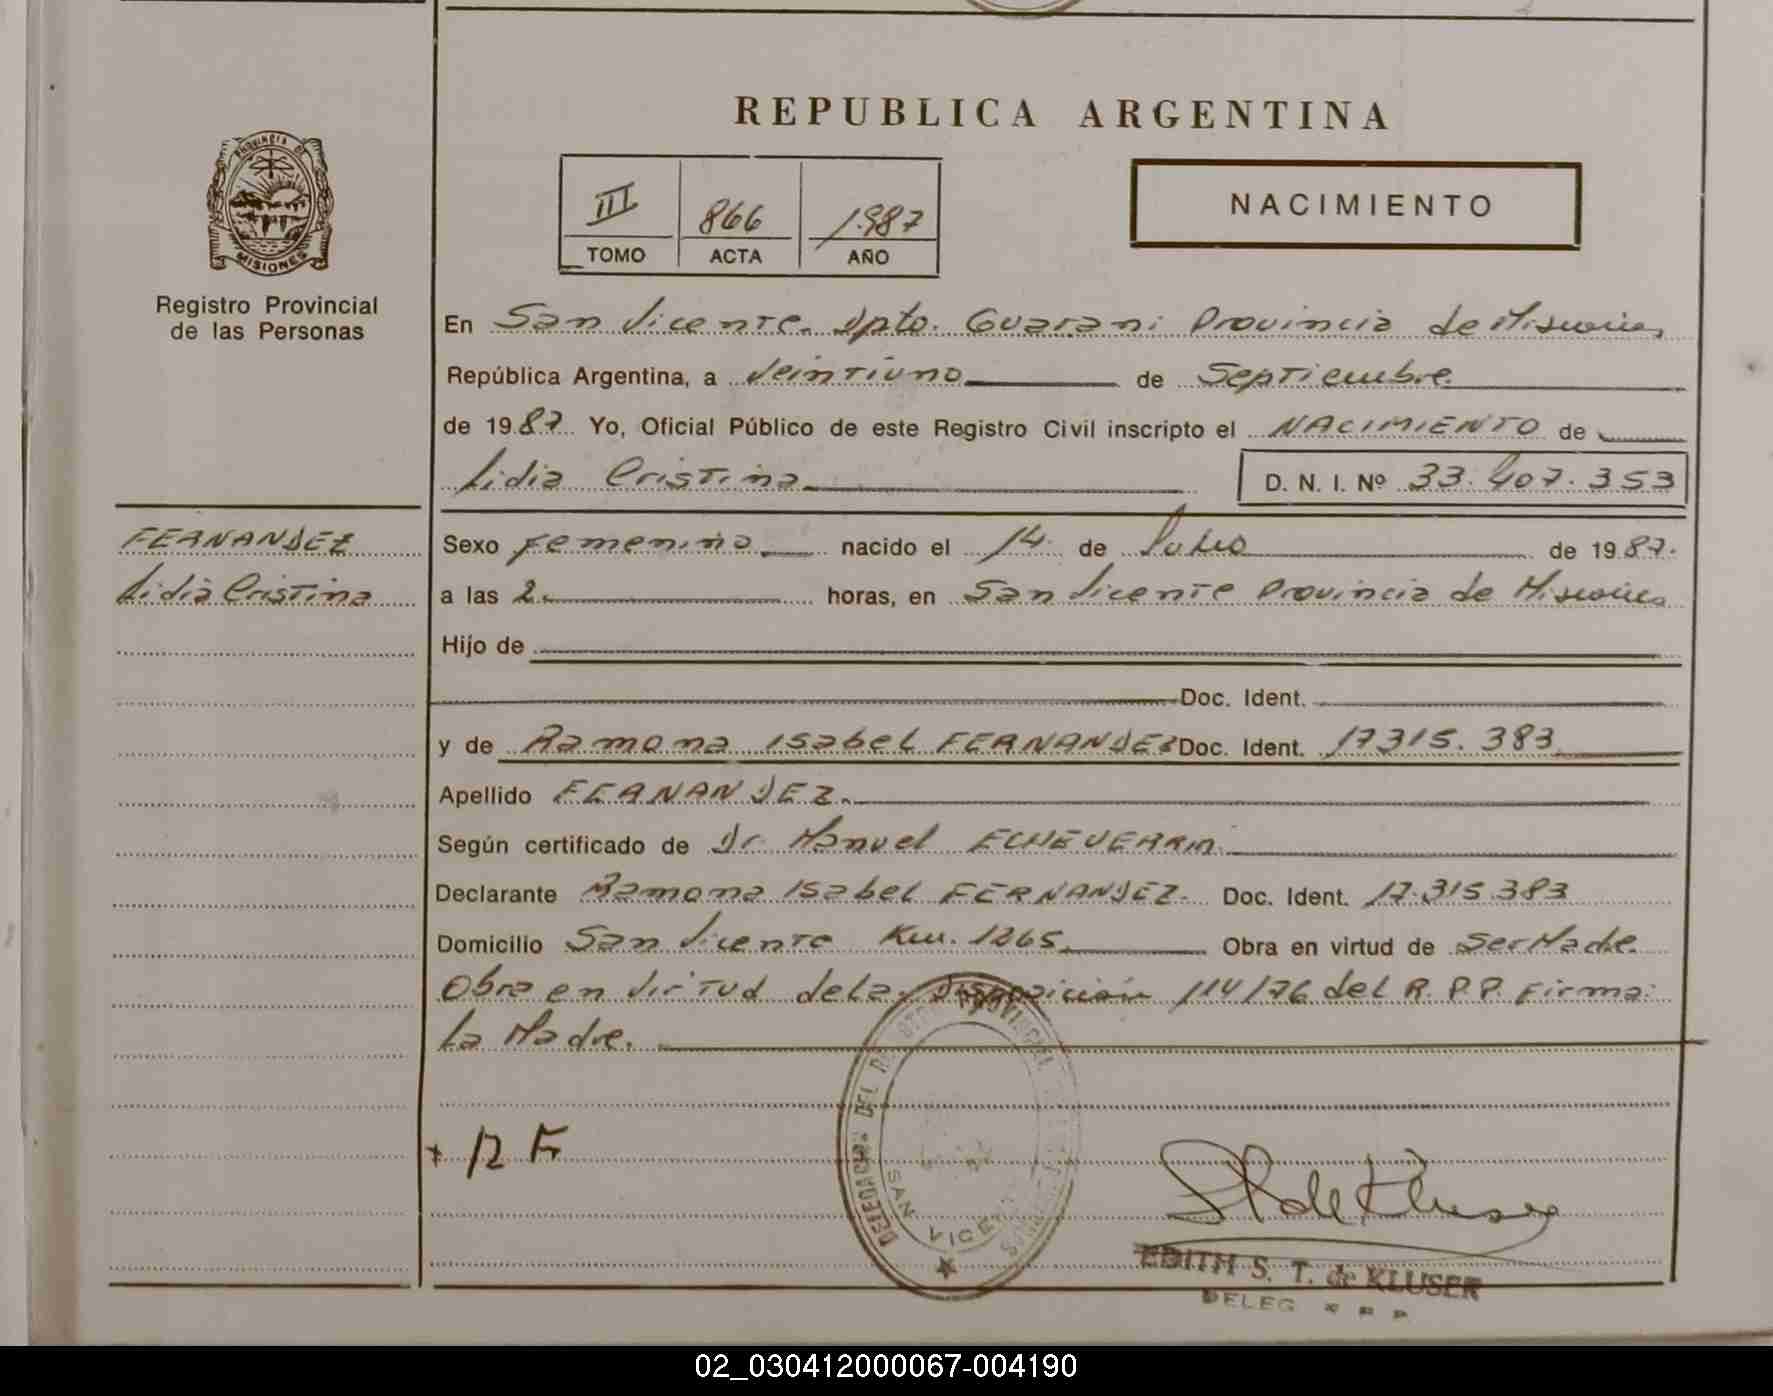 REPUBLICA ARGENTINA
PROVINCIA DE
MISIONES
Registro Provincial
de las Personas
III 866 1.987
TOMO ACTA AÑO
NACIMIENTO
En San Vicente. Dpto. Guarani Provincia de Misiones
República Argentina, a Veintiuno de Septiembre
de 1987 Yo, Oficial Público de este Registro Civil inscripto el NACIMIENTO de
Lidia Cristina D. N. I. Nº 33.407.353
FERNANDEZ
Lidia Cristina
Sexo femenino nacido el 14 de Julio de 1987.
a las 2. horas, en San Vicente Provincia de Misiones
Hijo de
Doc. Ident.
y de Ramona Isabel FERNANDEZ Doc. Ident. 17315.383
Apellido FERNANDEZ.
Según certificado de Dr. Manuel ECHEVERRIA
Declarante Ramona Isabel FERNANDEZ. Doc. Ident. 17.315.383
Domicilio San Vicente Km. 1265 Obra en virtud de Ser Madre.
Obra en virtud de la Disposición 114/76 del R.P.P. Firma:
La Madre.
DELEGACION DEL PROVINCIAL
SAN VICENTE
R F
E de Kluser
EDITH S. T. de KLUSER
DELEG
02_030412000067-004190